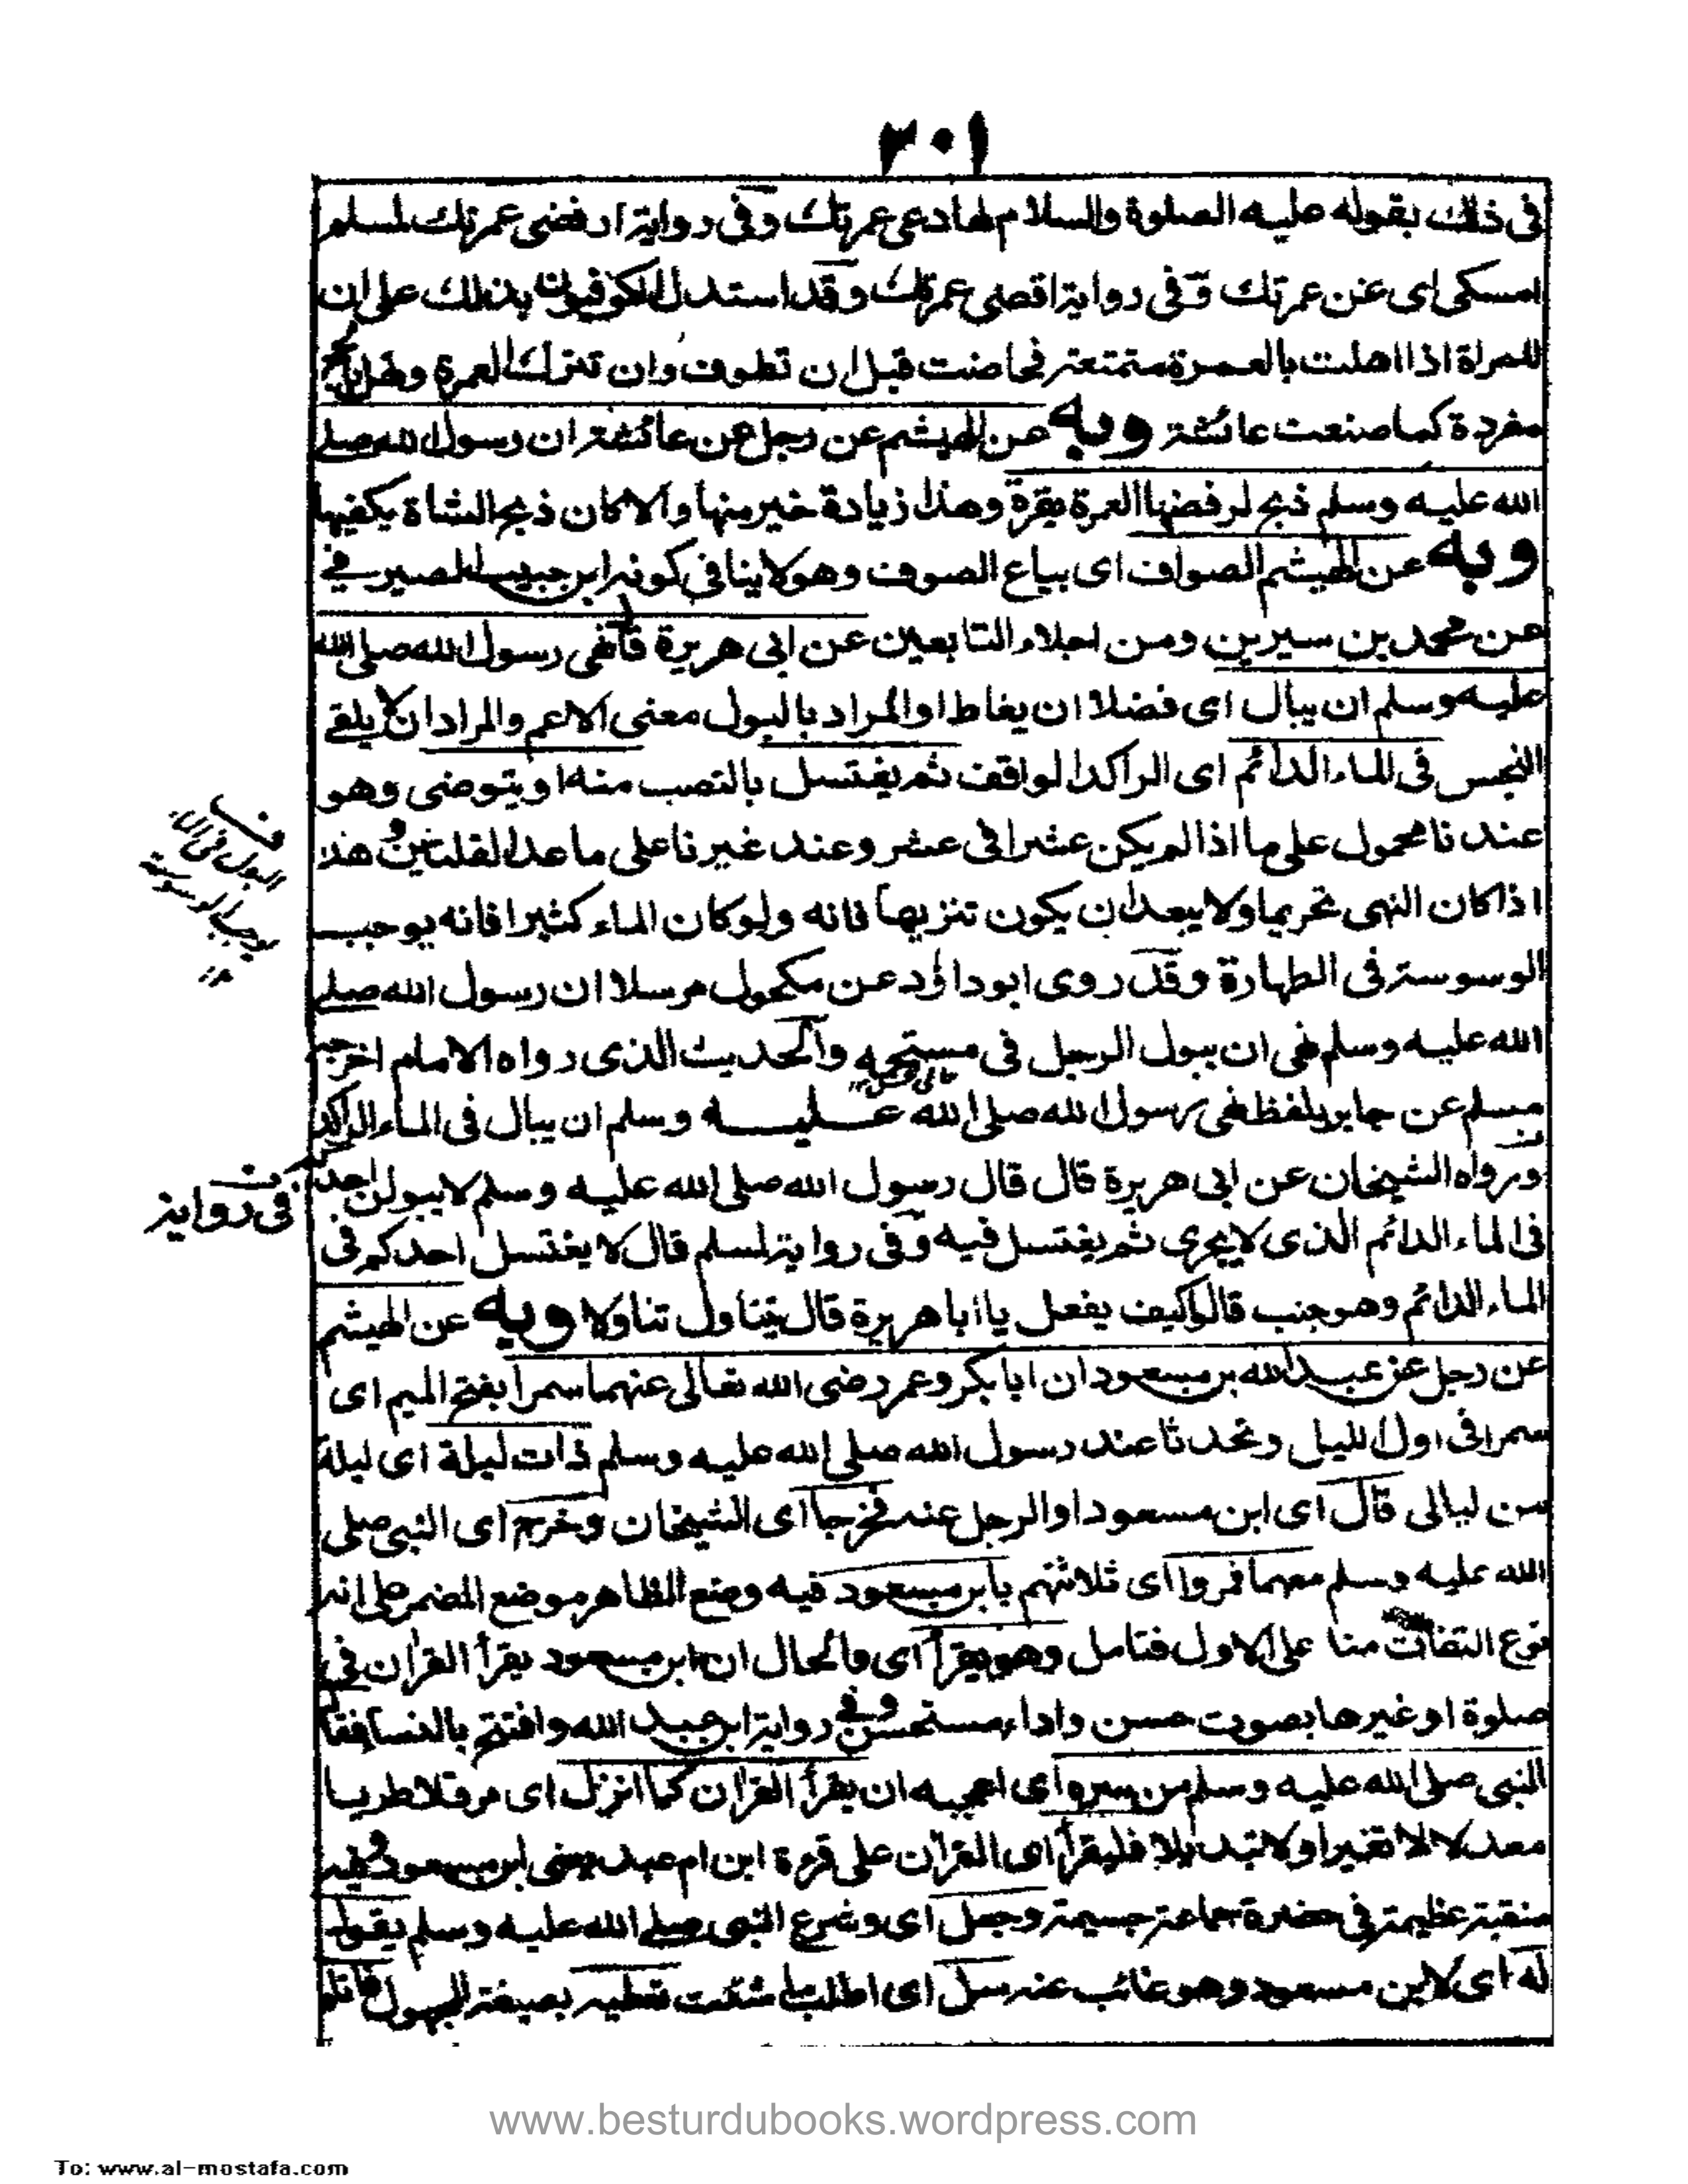 ٣٠١
في ذلك بقوله عليه الصلوة والسلام لها دعى عمرتك وفي رواية ارفضى عمرتك لمسلم
امسكى اى عن عمرتك وفي رواية اقضى عمرتك وقد استدل الكوفيون بذلك على ان
للمراة اذا اهلت بالعمرة متمتعة فحاضت قبل ان تطوف وان تترك العمرة وتهل بالحج
مفردة كما صنعت عائشة وبه عن الهيثم عن رجل عن عائشة ان رسول الله صلى
الله عليه وسلم ذبح لرفضها العمرة بقرة وهذا زيادة خير منها والا كان ذبح الشاة يكفيها
وبه عن الهيثم الصواف اى بياع الصوف وهو لا ينافي كونه ابن حبيب الصيرفي
عن محمد بن سيرين ومن اجلاء التابعين عن ابى هريرة قال نهى رسول الله صلى الله
عليه وسلم ان يبال اى فضلا ان يغاط او المراد بالبول معنى الاعم والمراد ان لا يلقى
النجس في الماء الدائم اى الراكد الواقف ثم يغتسل بالنصب منه او يتوضى وهو
عندنا محمول على ما اذا لم يكن عشرا في عشر وعند غيرنا على ما عدا القلتين وهذا
اذا كان النهى تحريما ولا يبعد ان يكون تنزيها فانه ولو كان الماء كثيرا فانه يوجب
الوسوسة في الطهارة وقد روى ابوداؤد عن مكحول مرسلا ان رسول الله صلى
الله عليه وسلم نهى ان يبول الرجل في مستحمه والحديث الذى رواه الامام اخرجه
مسلم عن جابر بلفظ نهى رسول الله صلى الله عليه وسلم ان يبال في الماء الراكد
ورواه الشيخان عن ابى هريرة قال قال رسول الله صلى الله عليه وسلم لا يبولن احدكم
في رواية
في الماء الدائم الذى لا يجرى ثم يغتسل فيه وفي رواية لمسلم قال لا يغتسل احدكم في
الماء الدائم وهو جنب قالوا كيف يفعل يا ابا هريرة قال يتناول تناولا وبه عن الهيثم
عن رجل عن عبد الله بن مسعود ان ابا بكر وعمر رضى الله تعالى عنهما سمرا بفتح الميم اى
سمرا في اول الليل وتحدثا عند رسول الله صلى الله عليه وسلم ذات ليلة اى ليلة
من ليالى قال اى ابن مسعود او الرجل عنه فخرجا اى الشيخان وخرج اى النبى صلى
الله عليه وسلم معهما فمروا اى ثلاثتهم بابن مسعود فيه وضع الظاهر موضع المضمر على انه
نوع التفات منا على الاول فتامل وهو يقرأ اى والحال ان ابن مسعود يقرأ القرآن في
صلوة او غيرها بصوت حسن واداء مستحسن وفي رواية ابن عبد الله وافتتح بالنسا فقال
النبى صلى الله عليه وسلم من سره اى اعجبه ان يقرأ القرآن كما انزل اى مرتلا طريا
معدلا لا تغيرا ولا تبديلا فليقرأ اى القرآن على قرءة ابن ام عبد يعنى ابن مسعود وفيه
منقبة عظيمة في حضرة جماعة جسيمة وجعل اى وشرع النبى صلى الله عليه وسلم يقول
له اى لابن مسعود وهو غائب عنه سل اى اطلب ما شئت تعطيه بصيغة المجهول
www.besturdubooks.wordpress.com
To: www.al-mostafa.com